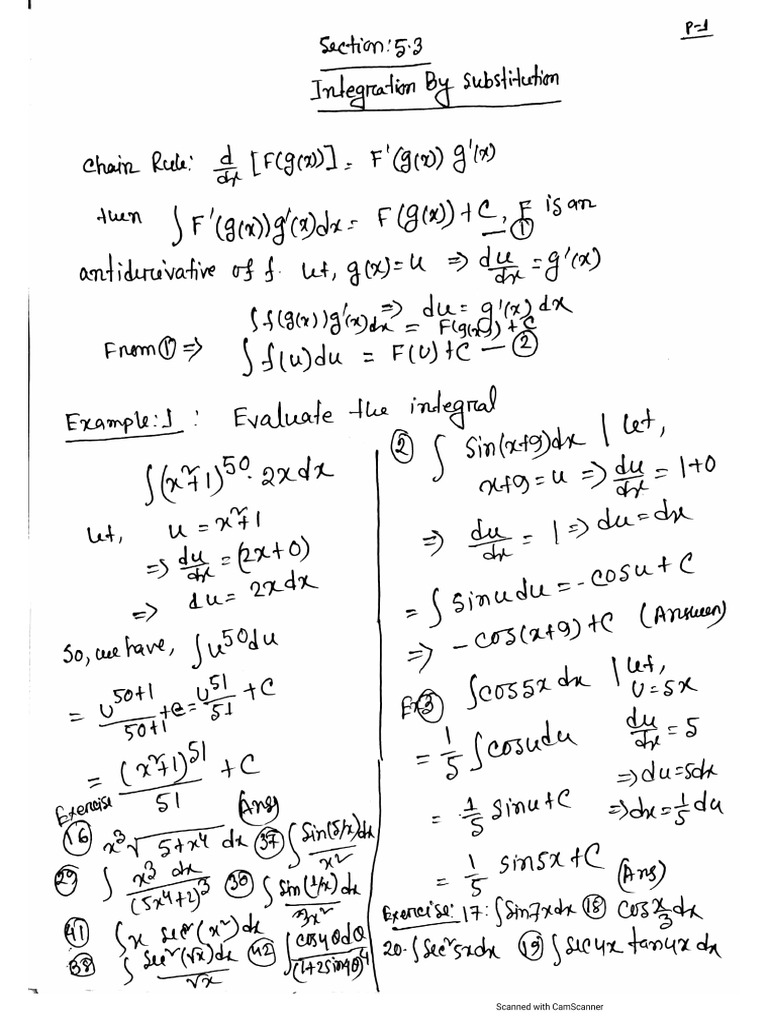 P-1
Section: 5.3
Integration By Substitution
Chain Rule: d/dx [F(g(x))] = F'(g(x)) g'(x)
then ∫F'(g(x))g'(x)dx = F(g(x)) + C, F is an
— ①
antiderivative of f. Let, g(x) = u ⇒ du/dx = g'(x)
⇒ du = g'(x) dx
∫f(g(x))g'(x)dx = F(g(x)) + C
From ① ⇒ ∫f(u)du = F(u) + C — ②
Example: 1 : Evaluate the integral
∫(x²+1)^50 · 2x dx
Let, u = x²+1
⇒ du/dx = (2x+0)
⇒ du = 2x dx
So, we have, ∫u^50 du
= u^(50+1)/(50+1) + c = u^51/51 + C
= (x²+1)^51/51 + C
(Ans)
② ∫ sin(x+9)dx | Let,
x+9 = u ⇒ du/dx = 1+0
⇒ du/dx = 1 ⇒ du = dx
= ∫ sin u du = -cos u + C
⇒ -cos(x+9) + C (Answer)
Ex ③ ∫cos 5x dx | Let,
u = 5x
= 1/5 ∫cos u du du/dx = 5
⇒ du = 5dx
= 1/5 sin u + C ⇒ dx = 1/5 du
= 1/5 sin 5x + C (Ans)
Exercise
⑯ x³√(5+x⁴) dx ㊲ ∫ sin(5/x)dx/x²
㉙ ∫ x³ dx/(5x⁴+2)³ ∫ sin(1/x) dx/3x²
㊶ ∫x sec²(x²)dx ㊷ ∫ cos4θ dθ/(1+2sin4θ)⁴
㊳ ∫ sec²(√x)dx/√x
Exercise: 17: ∫sin7x dx ⑱ cos x/3 dx
20. ∫sec² 5x dx ⑲ ∫sec4x tan4x dx
Scanned with CamScanner